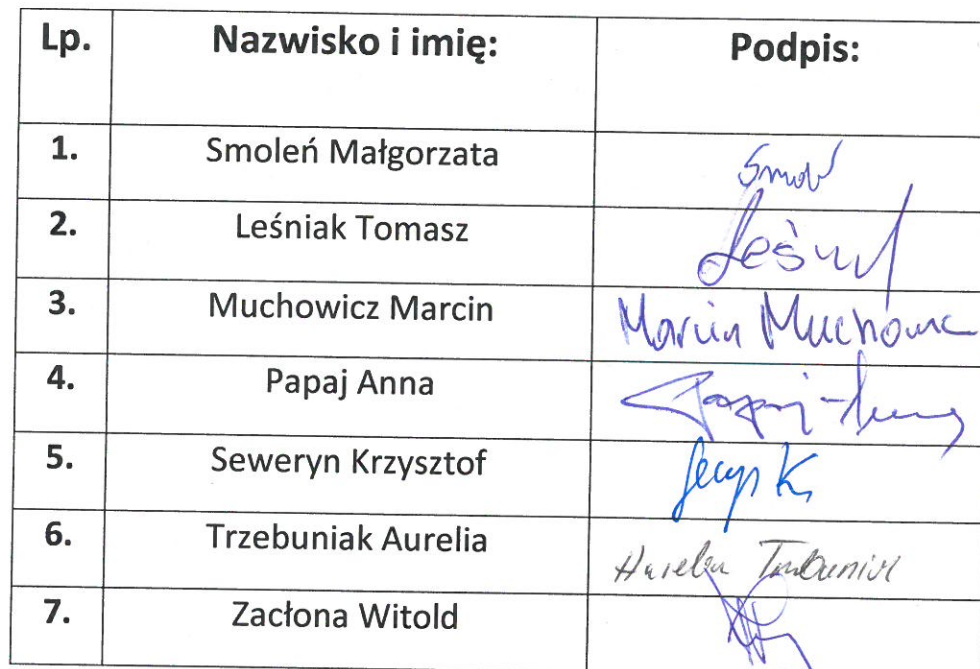 Lp. Nazwisko i imię: Podpis:
1. Smoleń Małgorzata
2. Leśniak Tomasz
3. Muchowicz Marcin Marcin Muchowic
4. Papaj Anna Papaj-Anna
5. Seweryn Krzysztof
6. Trzebuniak Aurelia Aurelia
7. Zacłona Witold